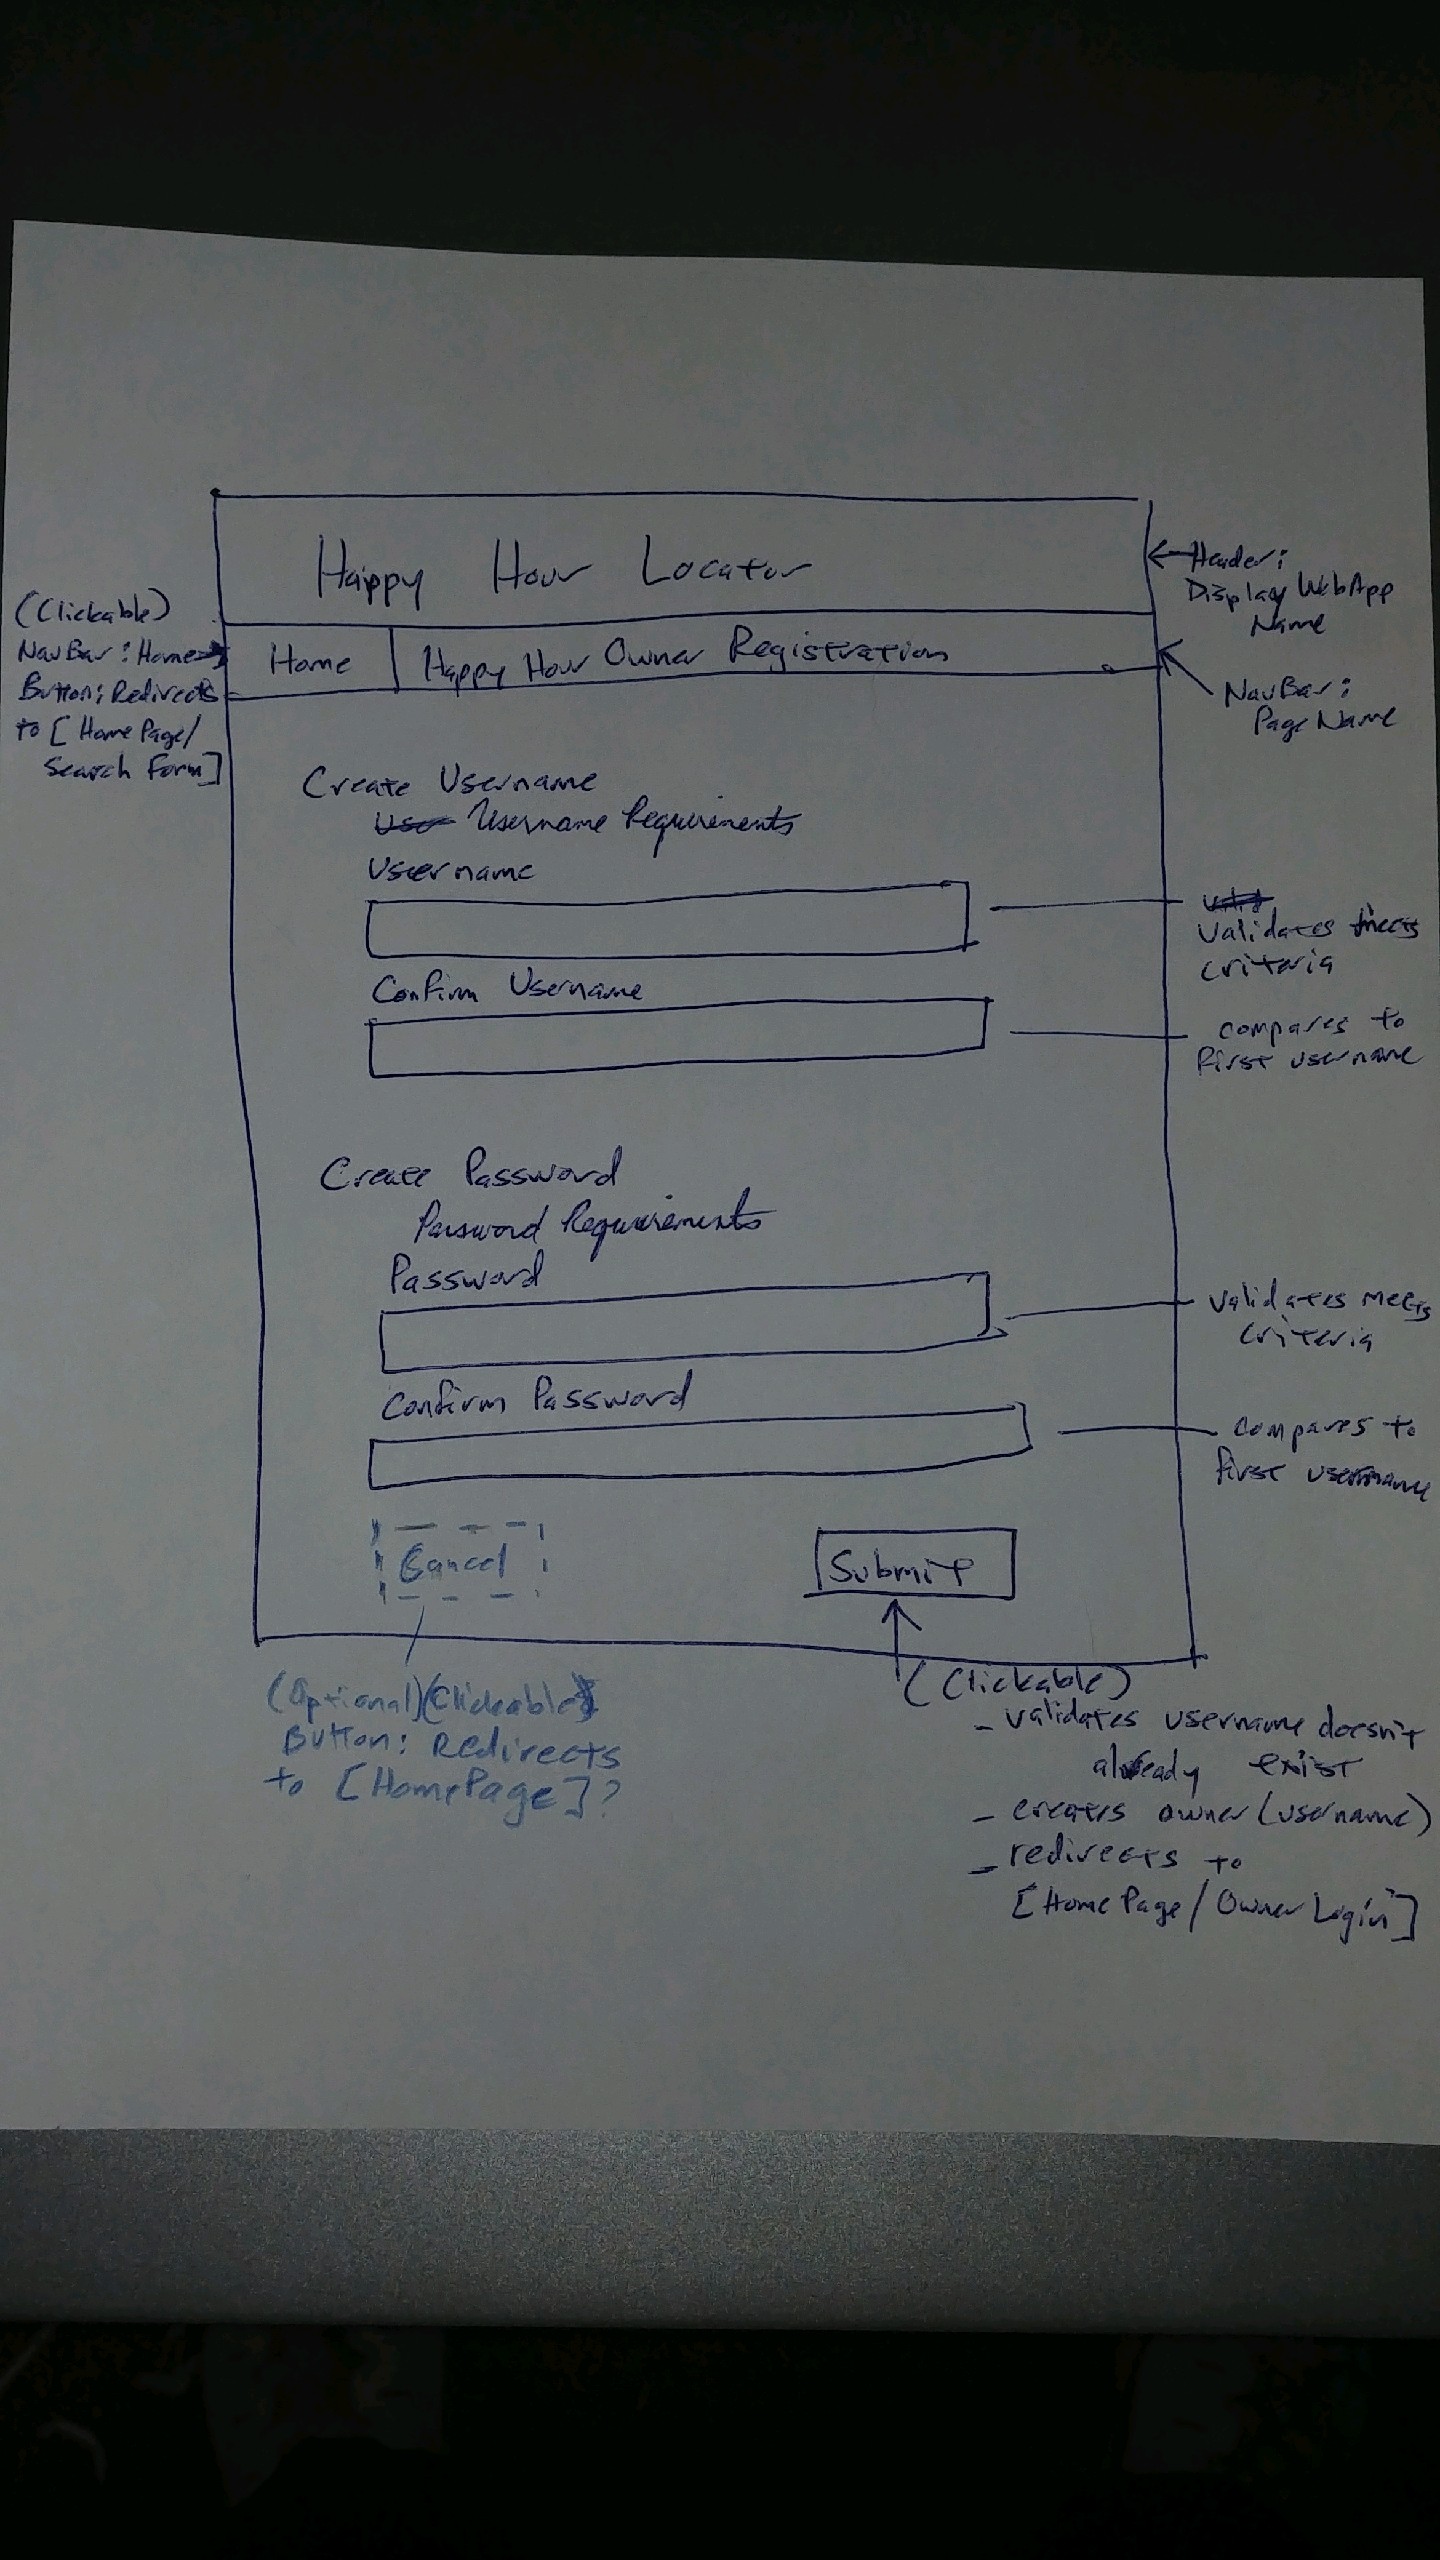 Happy Hour Locator
← Header:
Display WebApp
Name
(Clickable)
NavBar: Home
Button: Redirects
to [Home Page/
Search Form]
Home
Happy Hour Owner Registration
NavBar:
Page Name
Create Username
User Username Requirements
Username
valid
validates meets
criteria
Confirm Username
compares to
first username
Create Password
Password Requirements
Password
validates meets
criteria
Confirm Password
compares to
first username
Cancel
Submit
(Optional)(Clickable)
Button: Redirects
to [HomePage]?
(Clickable)
- validates username doesn't
already exist
- creates owner (username)
- redirects to
[Home Page/Owner Login]